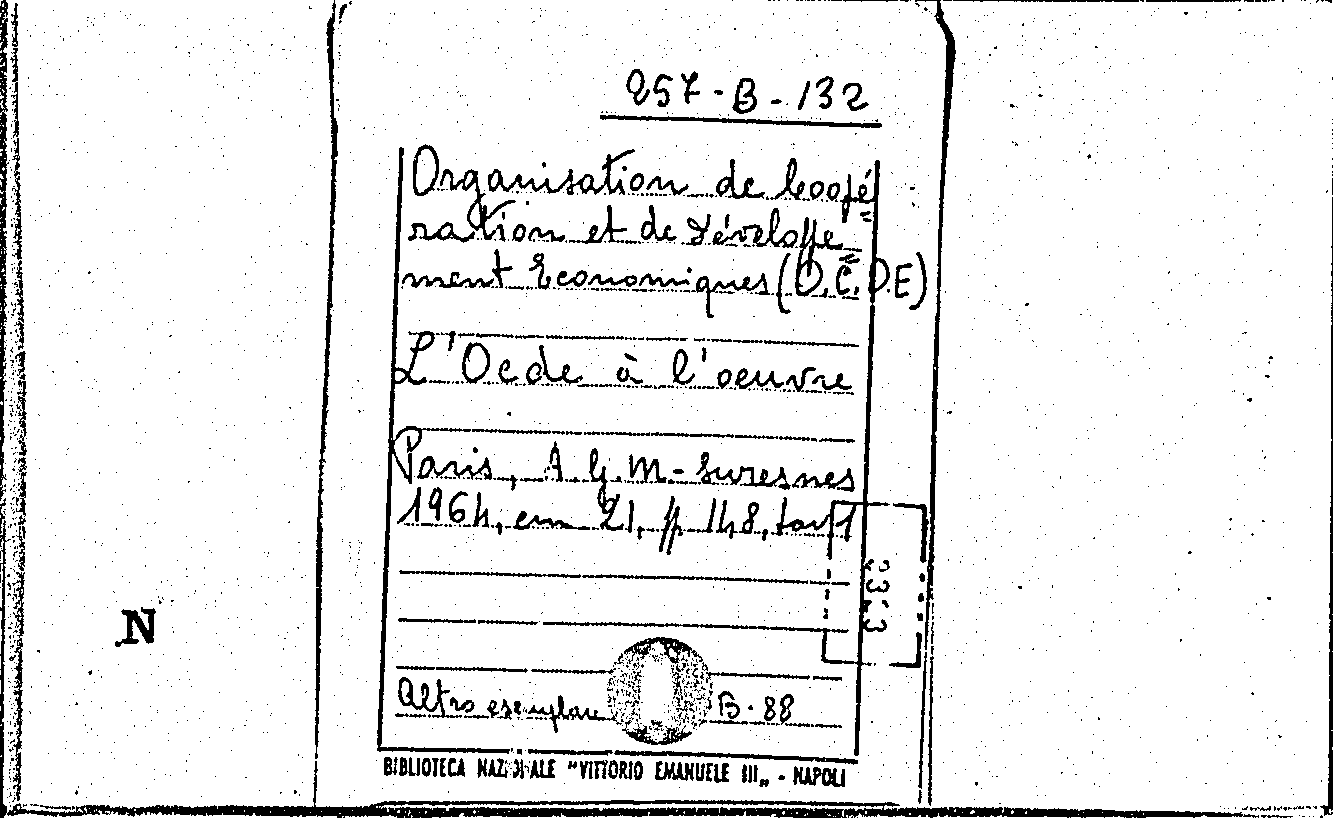 257-B-132
Organisation de Coopé=
ration et de Développe=
ment Economiques (O.C.D.E)
L'Ocde à l'oeuvre
Paris, A.G.M-Suresnes
1964, cm 21, pp 148, tav 1
N
Altro esemplare B.88
BIBLIOTECA NAZIONALE "VITTORIO EMANUELE III„ - NAPOLI